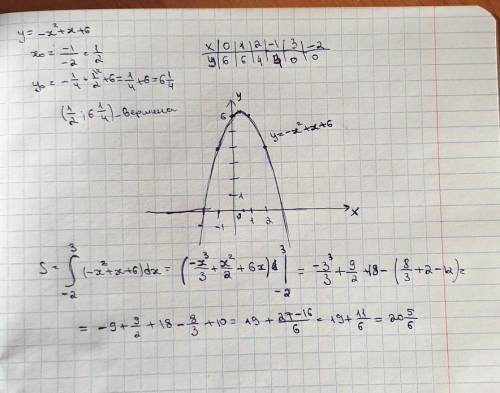 y = -x² + x + 6
x₀ = -1/-2 = 1/2
y₀ = -1/4 + 1²/2 + 6 = 1/4 + 6 = 6 1/4
(1/2 ; 6 1/4) - вершина
x | 0 | 1 | 2 | -1 | 3 | -2
y | 6 | 6 | 4 | 4 | 0 | 0
y
6
y = -x² + x + 6
1
-1 0 1 2 x
S = ∫₋₂³ (-x² + x + 6) dx = (-x³/3 + x²/2 + 6x) |₋₂³ = -3³/3 + 9/2 + 18 - (8/3 + 2 - 12) =
= -9 + 9/2 + 18 - 8/3 + 10 = 19 + (27-16)/6 = 19 + 11/6 = 20 5/6